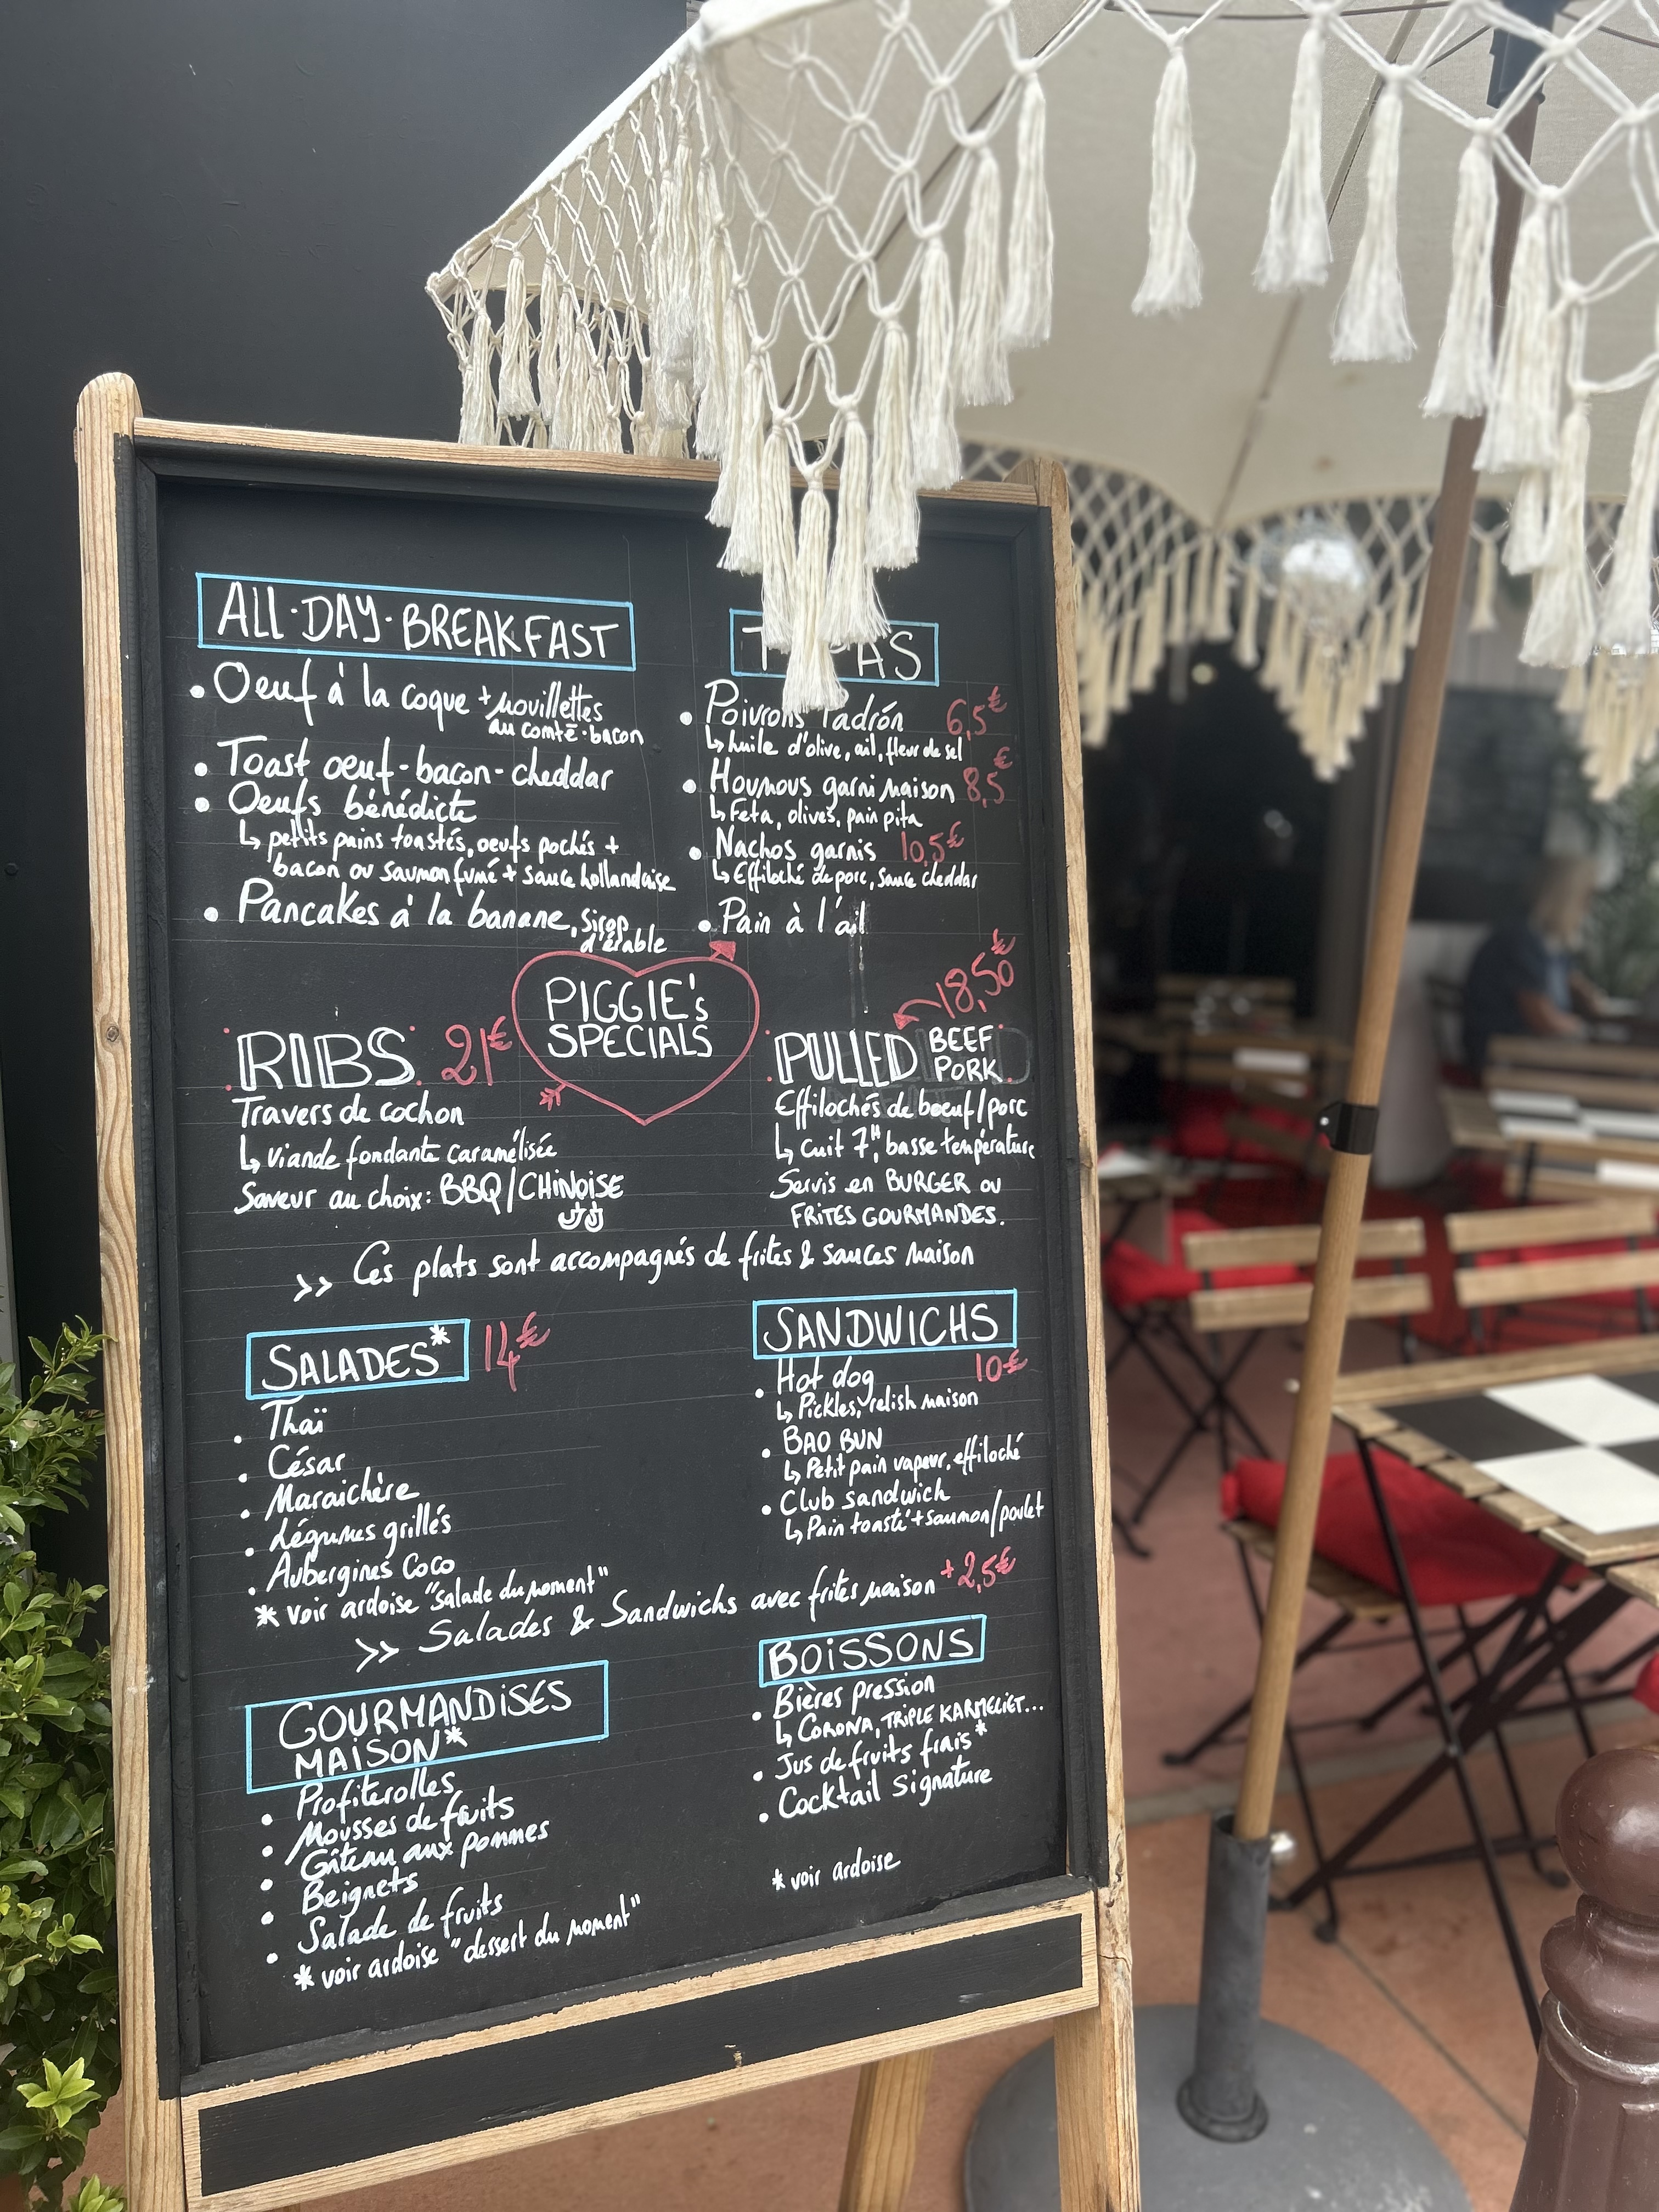 ALL·DAY·BREAKFAST
• Oeuf à la coque + mouillettes
au comté-bacon
• Toast oeuf-bacon-cheddar
• Oeufs bénédicte
↳ petits pains toastés, oeufs pochés +
bacon ou saumon fumé + sauce hollandaise
• Pancakes à la banane, sirop
d'érable
• Poivrons 6,5€
↳ huile d'olive, ail, fleur de sel
• Houmous garni maison 8,5€
↳ Feta, olives, pain pita
• Nachos garnis 10,5€
↳ Effiloché de porc, sauce cheddar
• Pain à l'ail
PIGGIE's
SPECIALS
RIBS 21€
Travers de cochon
↳ viande fondante caramélisée
Saveur au choix: BBQ/CHINOISE
18,50€
PULLED BEEF
PORK
Effilochés de boeuf/porc
↳ Cuit 7H, basse température
Servis en BURGER ou
FRITES GOURMANDES.
>> Ces plats sont accompagnés de frites & sauces maison
SALADES* 14€
• Thaï
• César
• Maraichère
• Légumes grillés
• Aubergines Coco
* voir ardoise "salade du moment"
SANDWICHS
• Hot dog 10€
↳ Pickles, relish maison
• BAO BUN
↳ Petit pain vapeur, effiloché
• Club sandwich
↳ Pain toasté + saumon/poulet
>> Salades & Sandwichs avec frites maison +2,5€
GOURMANDISES
MAISON*
• Profiterolles
• Mousses de fruits
• Gâteau aux pommes
• Beignets
• Salade de fruits
* voir ardoise "dessert du moment"
BOISSONS
• Bières pression
↳ CORONA, TRIPLE KARMELIET...
• Jus de fruits frais*
• Cocktail signature
* voir ardoise